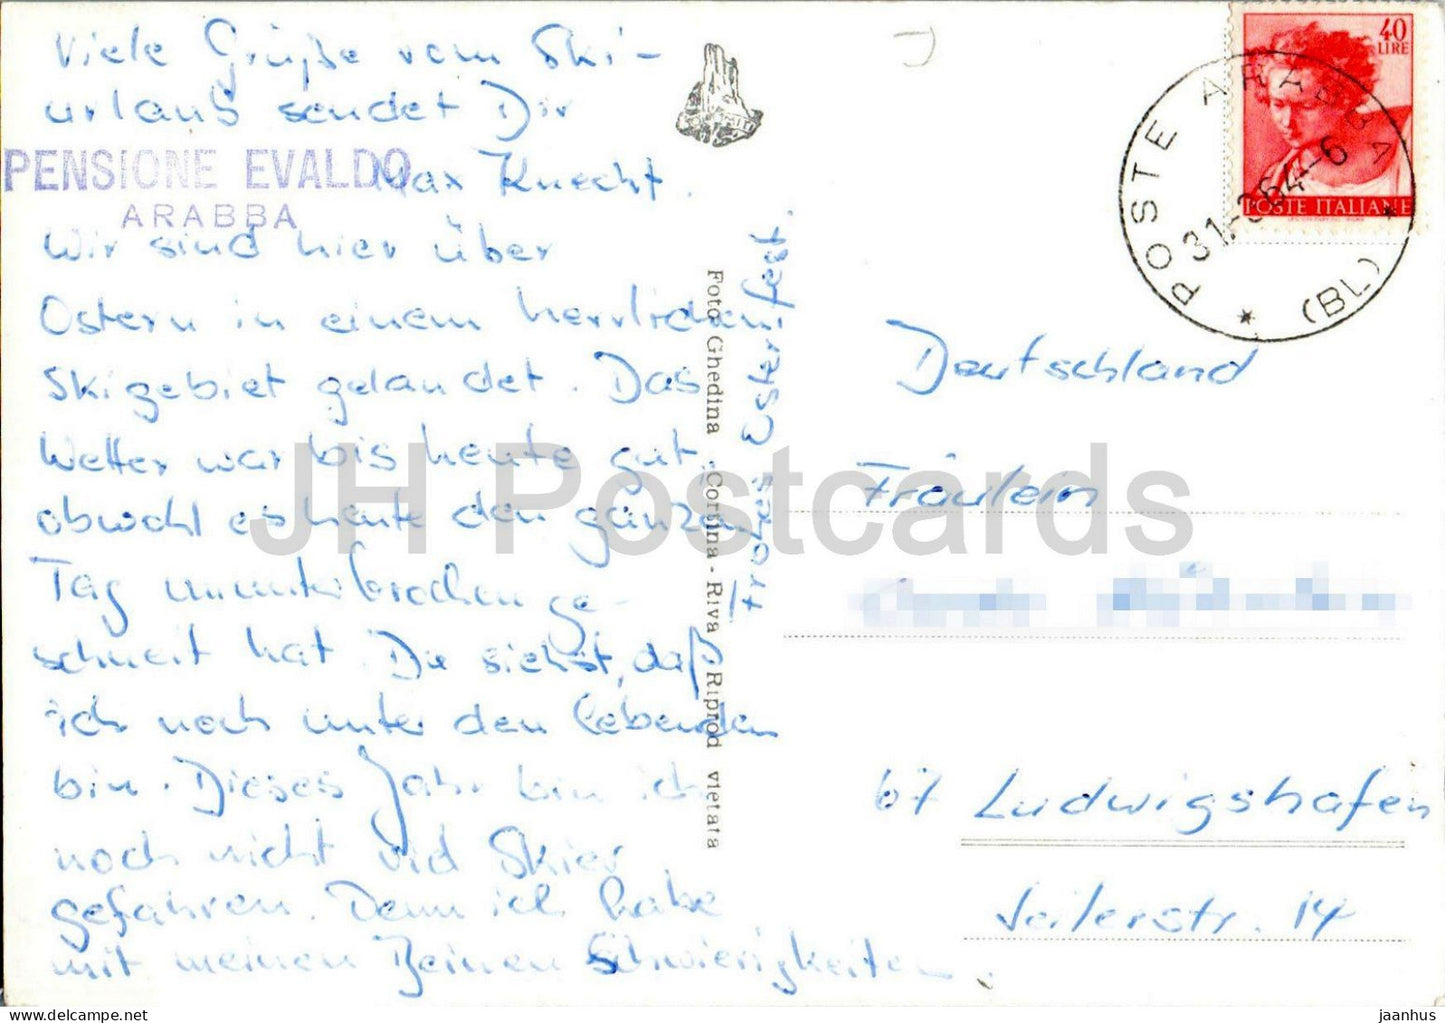 Viele Grüße vom Ski-
urlaub sendet Dir
Max Knecht.
PENSIONE EVALDO
ARABBA
Wir sind hier über
Ostern in einem herrlichen
Skigebiet gelandet. Das
Wetter war bis heute gut,
obwohl es heute den ganzen
Tag ununterbrochen ge-
schneit hat. Du siehst, daß
ich noch unter den Lebenden
bin. Dieses Jahr bin ich
noch nicht viel Skier
gefahren. Denn ich habe
mit meinen Beinen Schwierigkeiten.
Frohes Osterfest.
Foto Ghedina - Cortina - Riva Riprod vietata
40
LIRE
POSTE ITALIANE
POSTE ARABBA
(BL)
Deutschland
Fräulein
67 Ludwigshafen
Seilerstr. 14
JH Postcards
jaanhus